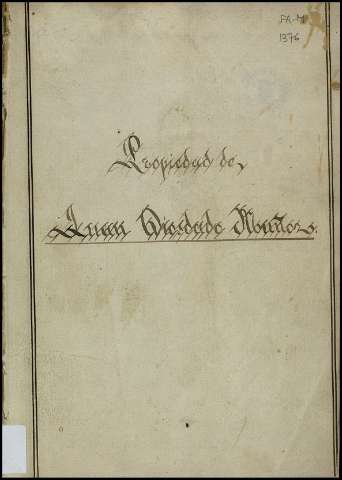 FA-M
1376
Propiedad de
Juan Diosdado Muñoz.